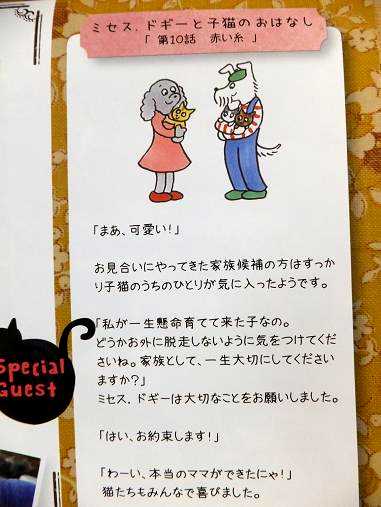 ミセス.ドギーと子猫のおはなし
「 第10話　赤い糸 」
「まあ、可愛い!」
お見合いにやってきた家族候補の方はすっか
り子猫のうちのひとりが気に入ったようです。
「私が一生懸命育てて来た子なの。
どうかお外に脱走しないように気をつけてくだ
さいね。家族として、一生大切にしてください
ますか?」
ミセス.ドギーは大切なことをお願いしました。
「はい、お約束します!」
「わーい、本当のママができたにゃ!」
猫たちもみんなで喜びました。
Special
Guest